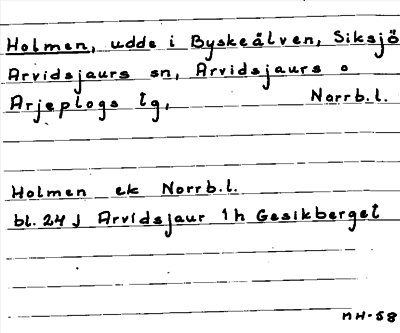 Holmen, udde i Byskeälven, Siksjö
Arvidsjaurs sn, Arvidsjaurs o
Arjeplogs tg, Norrb.l.
Holmen ek Norrb.l.
bl. 24 J Arvidsjaur 1 h Gesikberget
MH-58